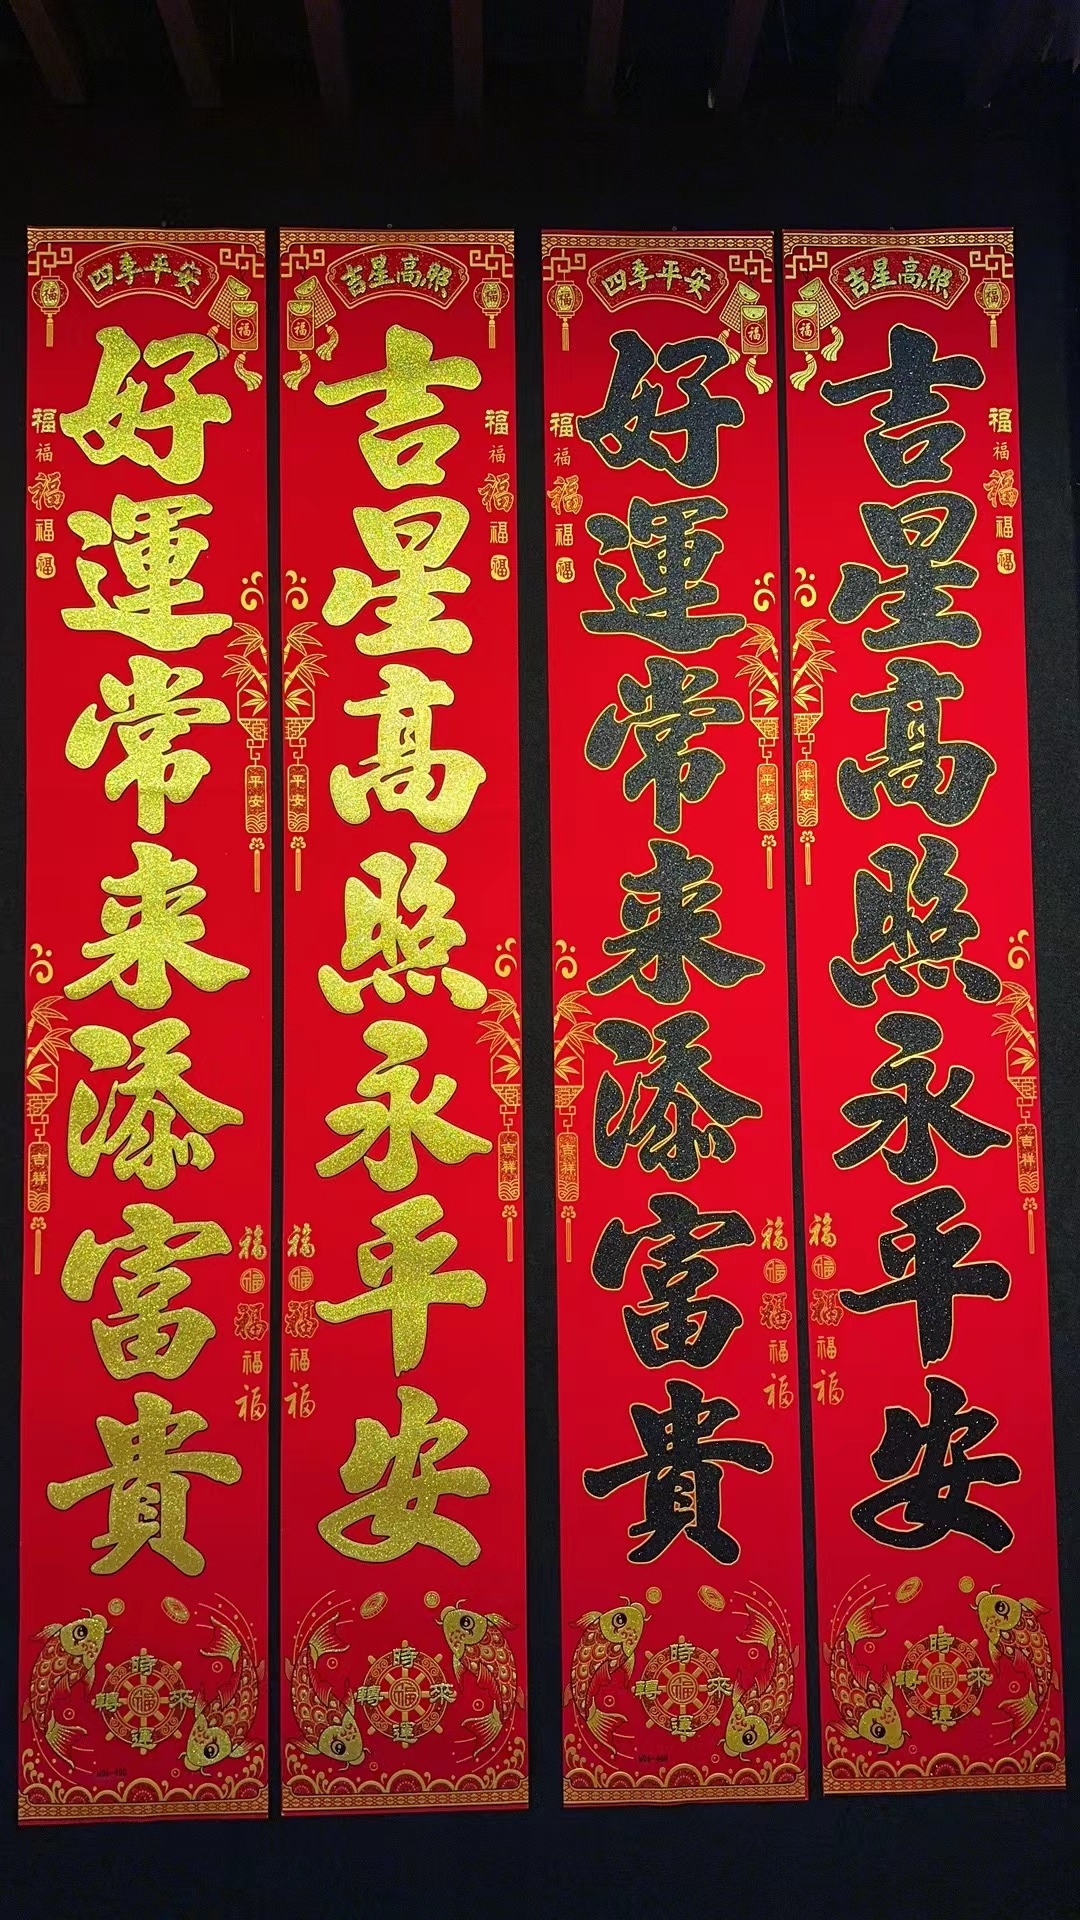 四季平安
好運常来添富貴
福
福
福
福
福
福
福
平安
吉祥
福
福
福
福
福
時來運轉
福
W06-400
吉星高照
吉星高照永平安
福
福
福
福
福
福
福
平安
吉祥
福
福
福
福
福
時來運轉
福
四季平安
好運常来添富貴
福
福
福
福
福
福
福
平安
吉祥
福
福
福
福
福
時來運轉
福
吉星高照
吉星高照永平安
福
福
福
福
福
福
福
平安
吉祥
福
福
福
福
福
時來運轉
福